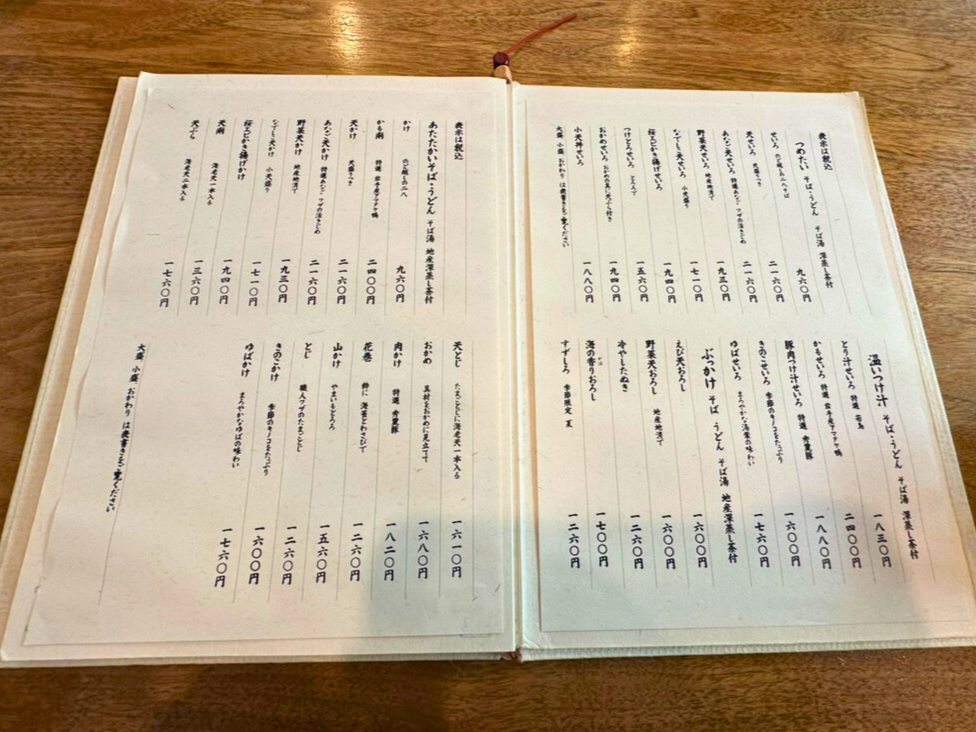 表示は税込
つめたい そば・うどん そば湯 深蒸し茶付
せいろ のど越しの二八そば 九六〇円
天せいろ 二一六〇円
あなご天せいろ 特選あなご ワザの活きじめ 二一六〇円
野菜天せいろ 地産地消で 一九三〇円
なでしこ天せいろ 小天盛り 一七一〇円
桜エビかき揚げせいろ 一九四〇円
つけとろせいろ とろろで 一五六〇円
おかめせいろ おかめの具に天ぷら付き 一九四〇円
小天丼せいろ 一八八〇円
大盛 小盛 おかわり は表書きをご覧ください
温いつけ汁 そば・うどん そば湯 深蒸し茶付
とり汁せいろ 特選 一八三〇円
かもせいろ 特選 岩手産アマタケ鴨 二四〇〇円
豚肉つけ汁せいろ 特選 一八八〇円
きのこせいろ 季節のキノコをたっぷり 一六〇〇円
ゆばせいろ まろやかな湯葉の味わい 一七六〇円
ぶっかけ そば うどん そば湯 地産深蒸し茶付
えび天おろし 一六〇〇円
野菜天おろし 地産地消で 一六〇〇円
冷やしたぬき 一二六〇円
海の香りおろし 一七〇〇円
すずしろ 季節限定 夏 一二六〇円
表示は税込
あたたかいそば・うどん そば湯 地産深蒸し茶付
かけ のど越しの二八 九六〇円
かも南 特選 岩手産アマタケ鴨 二四〇〇円
天かけ 二一六〇円
あなご天かけ 特選あなご ワザの活きじめ 二一六〇円
野菜天かけ 地産地消で 一九三〇円
なでしこ天かけ 小天盛り 一七一〇円
桜エビかき揚げかけ 一九四〇円
天南 海老天一本入る 一三六〇円
天ぷら 海老天二本入る 一七六〇円
天とじ たまごとじに海老天一本入る 一六一〇円
おかめ 具材をおかめに見立てて 一六八〇円
肉かけ 特選 一八二〇円
花巻 粋に 海苔とわさびで 一二六〇円
山かけ やまいもとろろ 一五六〇円
とじ 職人ワザのたまごとじ 一二六〇円
きのこかけ 季節のキノコをたっぷり 一六〇〇円
ゆばかけ まろやかなゆばの味わい 一七六〇円
大盛 小盛 おかわり は表書きをご覧ください